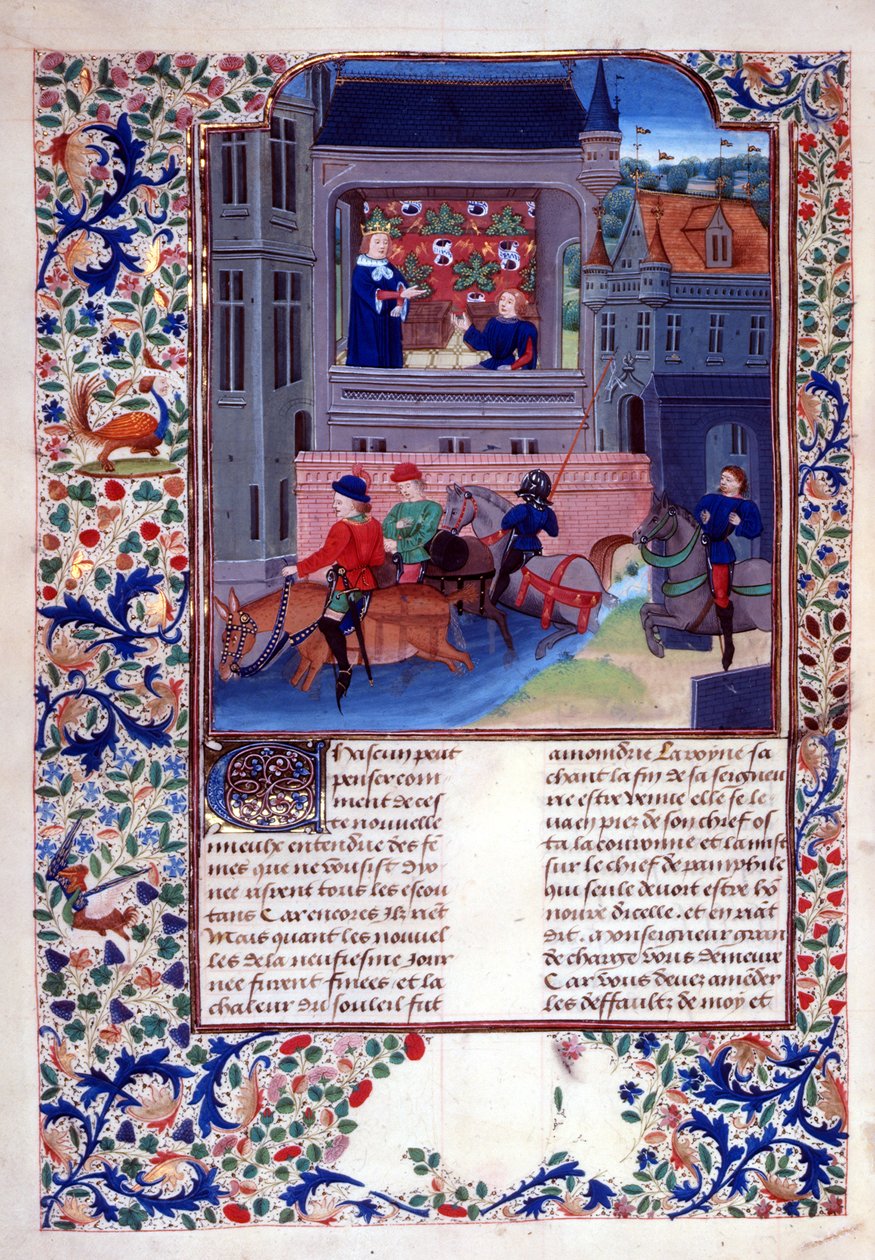 Chascun peut
penser com
ment de ces
te nouvelle
mieulx entendue des fe
mes que ne voulsist Dyo
nee risrent tous les escou
tans Car encores ilz riēt
Mais quant les nouvel
les de la neufiesme Jour
nee furent finees et la
chaleur du souleil fut
amoindrie La royne sa
chant la fin de sa seigneu
rie estre venue elle se le
va en piez de son chief os
ta la couronne et la mist
sur le chief de pamphile
qui seule devoit estre ho
nouré dicelle. et en riāt
dit. Monseigneur gran
de charge vous demeure
Car vous devez amēder
les deffaultz de moy et